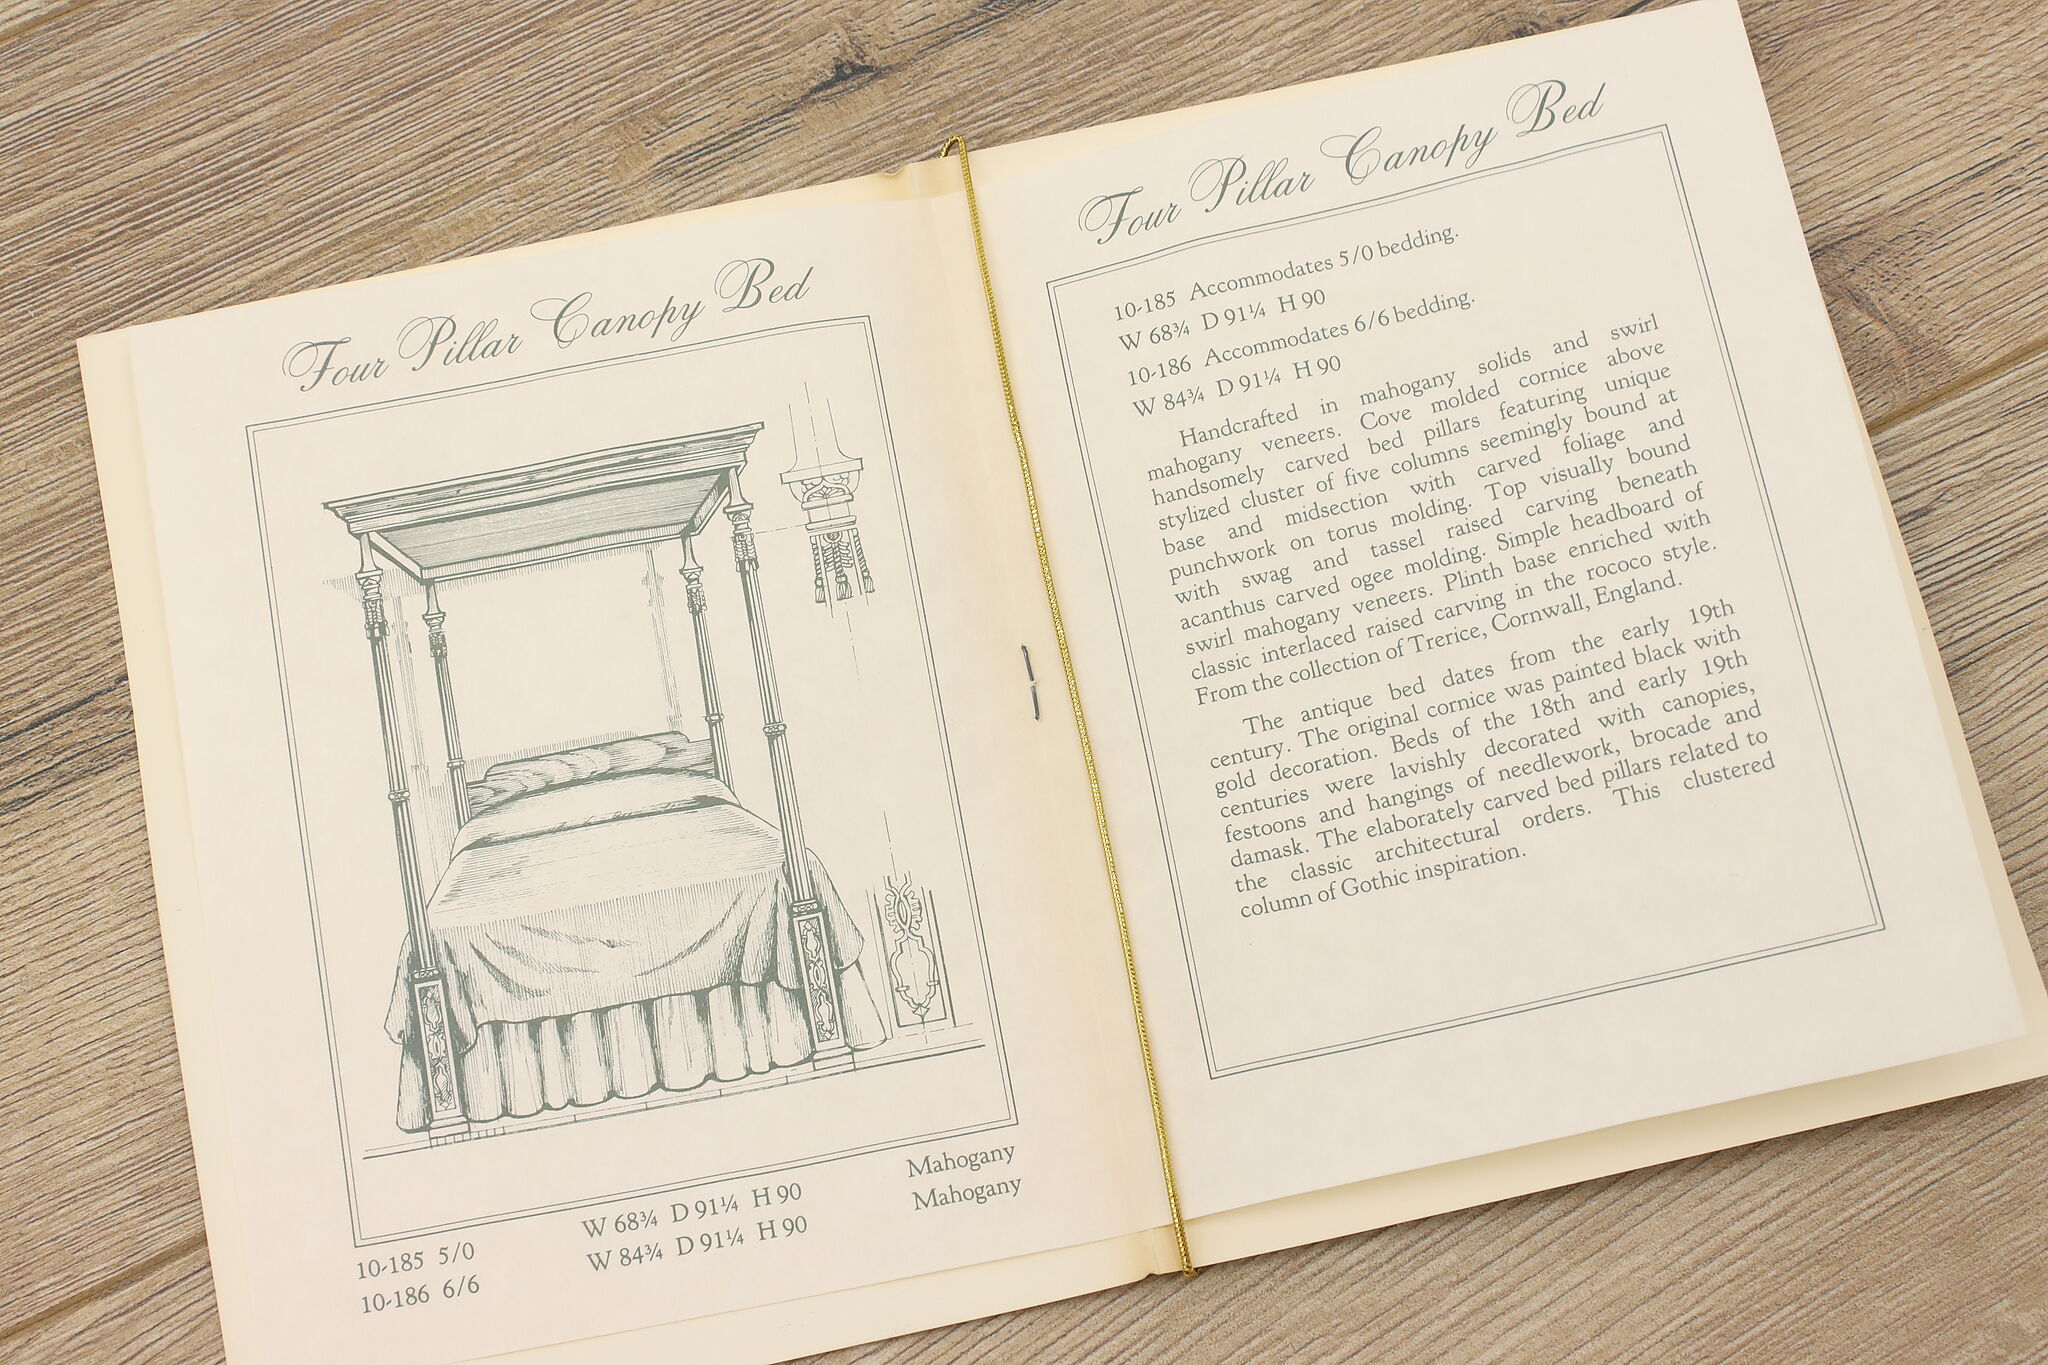 Four Pillar Canopy Bed
10-185 5/0 W 68¾ D 91¼ H 90 Mahogany
10-186 6/6 W 84¾ D 91¼ H 90 Mahogany
Four Pillar Canopy Bed
10-185 Accommodates 5/0 bedding.
W 68¾ D 91¼ H 90
10-186 Accommodates 6/6 bedding.
W 84¾ D 91¼ H 90
Handcrafted in mahogany solids and swirl
mahogany veneers. Cove molded cornice above
handsomely carved bed pillars featuring unique
stylized cluster of five columns seemingly bound at
base and midsection with carved foliage and
punchwork on torus molding. Top visually bound
with swag and tassel raised carving beneath
acanthus carved ogee molding. Simple headboard of
swirl mahogany veneers. Plinth base enriched with
classic interlaced raised carving in the rococo style.
From the collection of Trerice, Cornwall, England.
The antique bed dates from the early 19th
century. The original cornice was painted black with
gold decoration. Beds of the 18th and early 19th
centuries were lavishly decorated with canopies,
festoons and hangings of needlework, brocade and
damask. The elaborately carved bed pillars related to
the classic architectural orders. This clustered
column of Gothic inspiration.